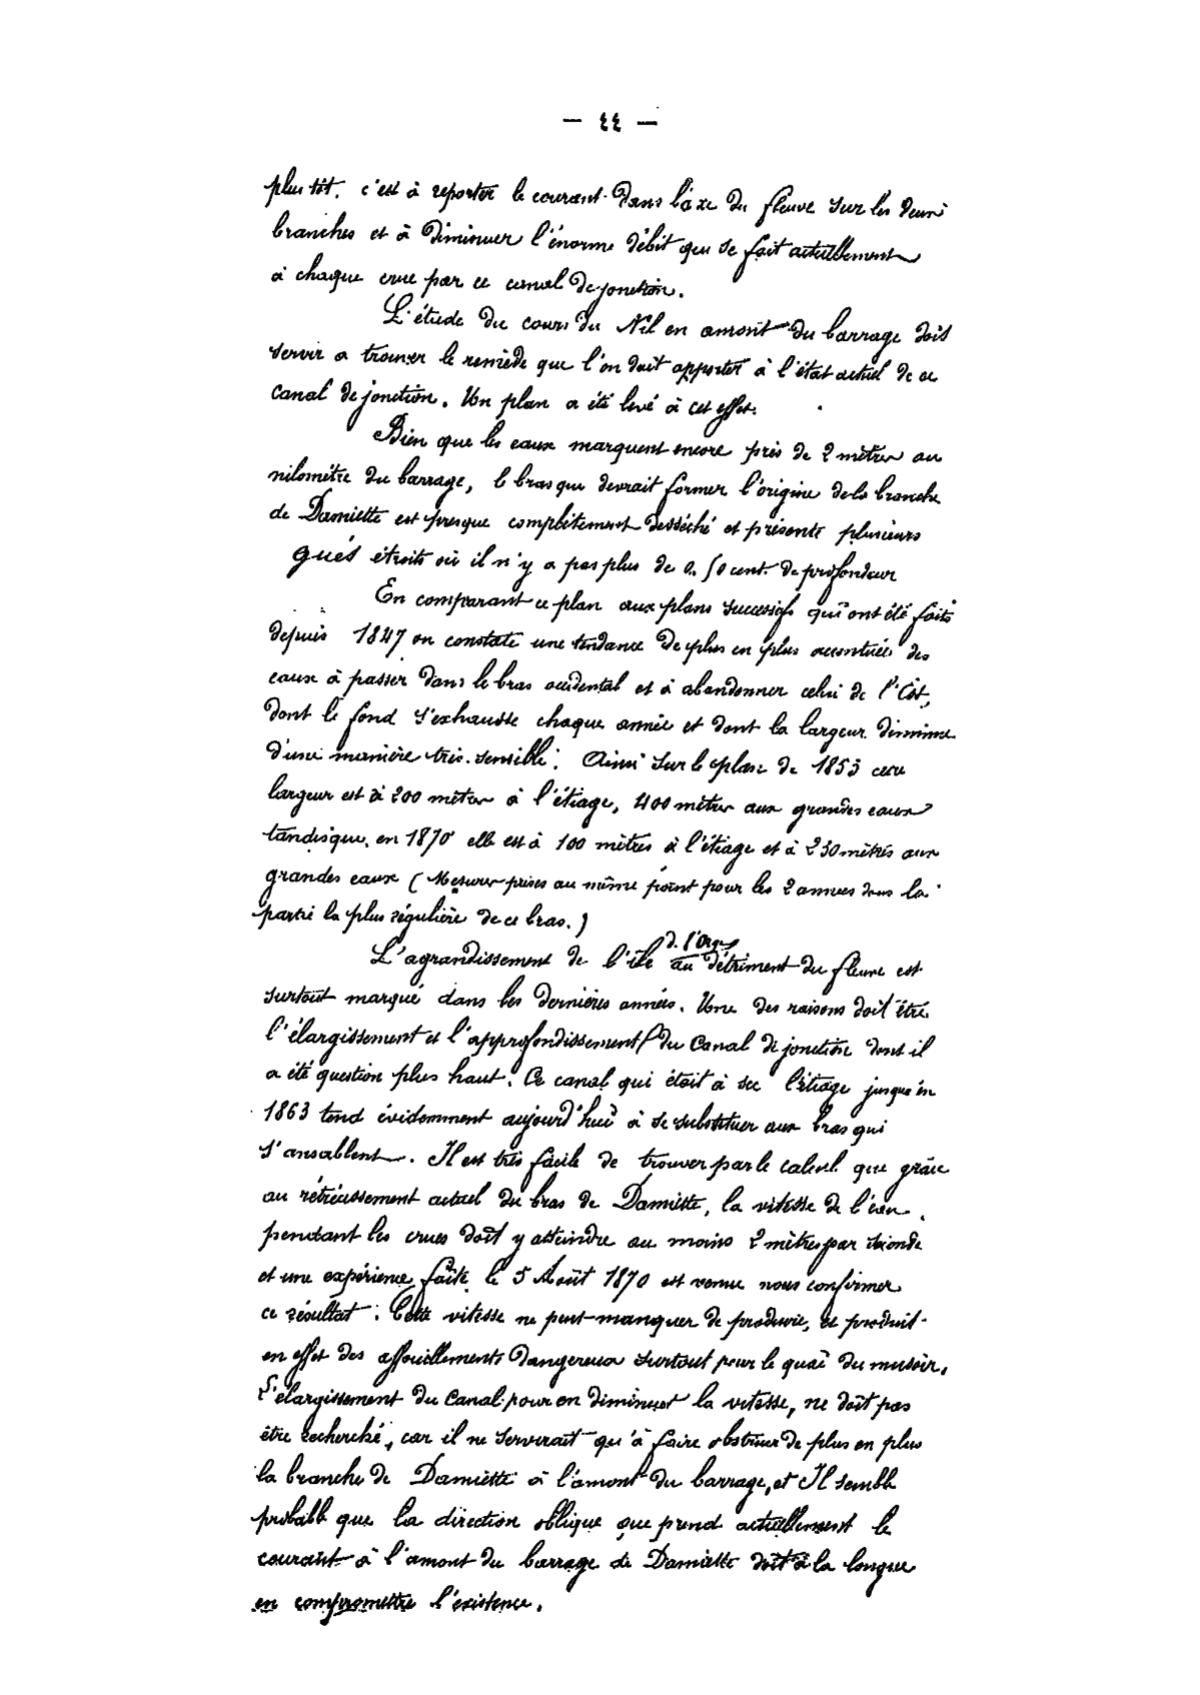 — ٤٤ —
plus tôt. c'est à reporter le courant dans l'axe du fleuve sur les deux
branches et à diminuer l'énorme débit qui se fait actuellement
à chaque crue par ce canal de jonction.
L'étude du cours du Nil en amont du barrage doit
servir a trouver le remède que l'on doit apporter à l'état actuel de ce
canal de jonction. Un plan a été levé à cet effet.
Bien que les eaux marquent encore près de 2 mètres au
nilomètre du barrage, le bras qui devrait former l'origine de la branche
de Damiette est presque complètement desséché et présente plusieurs
gués étroits où il n'y a pas plus de 0.50 cent. de profondeur
En comparant ce plan aux plans successifs qui ont été faits
depuis 1847 on constate une tendance de plus en plus accentuée des
eaux à passer dans le bras occidental et à abandonner celui de l'Est,
dont le fond s'exhausse chaque année et dont la largeur diminue
d'une manière très-sensible. Ainsi sur le plan de 1853 cette
largeur est à 200 mètres à l'étiage, 400 mètres aux grandes eaux
tandisque, en 1870 elle est à 100 mètres à l'étiage et à 230 mètres aux
grandes eaux (Mesures prises au même point pour les 2 années dans la
partie la plus régulière de ce bras.)
L'agrandissement de l'île au détriment du fleuve est
surtout marqué dans les dernières années. Une des raisons doit être
l'élargissement et l'approfondissement du Canal de jonction dont il
a été question plus haut. Ce canal qui était à sec l'étiage jusqu'en
1863 tend évidemment aujourd'hui à se substituer aux bras qui
s'ensablent. Il est très facile de trouver par le calcul que grâce
au rétrécissement actuel du bras de Damiette, la vitesse de l'eau
pendant les crues doit y atteindre au moins 2 mètres par seconde
et une expérience faite le 5 Août 1870 est venue nous confirmer
ce résultat. Cette vitesse ne peut manquer de produire, et produit
en effet des affouillements dangereux surtout pour le quai du musoir.
L'élargissement du Canal pour en diminuer la vitesse, ne doit pas
être recherché, car il ne servirait qu'à faire obstruer de plus en plus
la branche de Damiette à l'amont du barrage, et Il semble
probable que la direction oblique que prend actuellement le
courant à l'amont du barrage de Damiette doit à la longue
en compromettre l'existence.